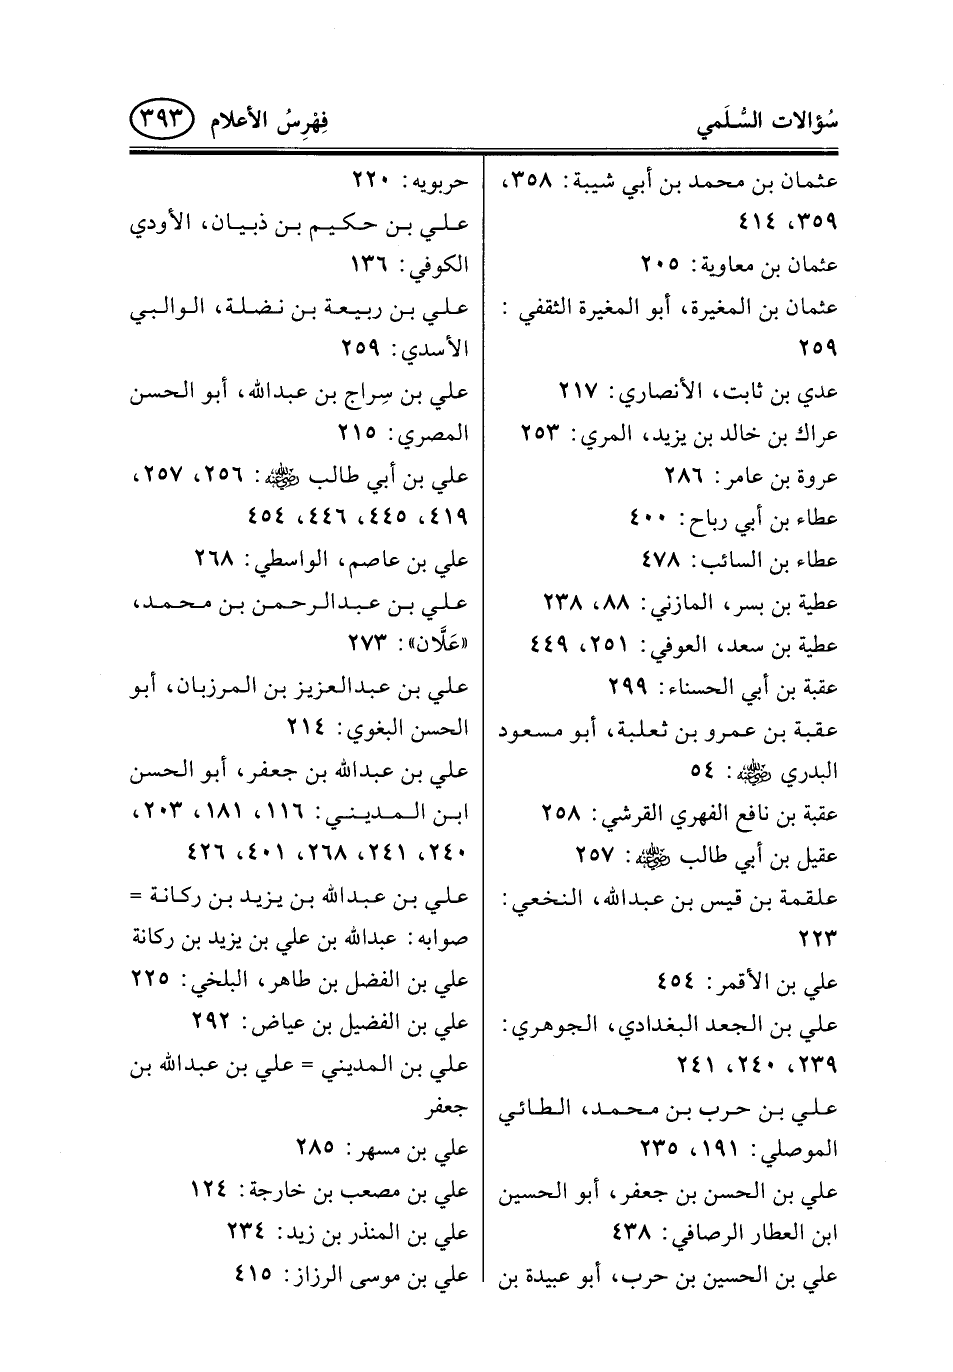 سُؤالات السُّلَمي
فِهْرِسُ الأعلام ٣٩٣
عثمان بن محمد بن أبي شيبة: ٣٥٨،
٣٥٩، ٤١٤
عثمان بن معاوية: ٢٠٥
عثمان بن المغيرة، أبو المغيرة الثقفي:
٢٥٩
عدي بن ثابت، الأنصاري: ٢١٧
عراك بن خالد بن يزيد، المري: ٢٥٣
عروة بن عامر: ٢٨٦
عطاء بن أبي رباح: ٤٠٠
عطاء بن السائب: ٤٧٨
عطية بن بسر، المازني: ٨٨، ٢٣٨
عطية بن سعد، العوفي: ٢٥١، ٤٤٩
عقبة بن أبي الحسناء: ٢٩٩
عقبة بن عمرو بن ثعلبة، أبو مسعود
البدري ﵁: ٥٤
عقبة بن نافع الفهري القرشي: ٢٥٨
عقيل بن أبي طالب ﵁: ٢٥٧
علقمة بن قيس بن عبدالله، النخعي:
٢٢٣
علي بن الأقمر: ٤٥٤
علي بن الجعد البغدادي، الجوهري:
٢٣٩، ٢٤٠، ٢٤١
علي بن حرب بن محمد، الطائي
الموصلي: ١٩١، ٢٣٥
علي بن الحسن بن جعفر، أبو الحسين
ابن العطار الرصافي: ٤٣٨
علي بن الحسين بن حرب، أبو عبيدة بن
حربويه: ٢٢٠
علي بن حكيم بن ذبيان، الأودي
الكوفي: ١٣٦
علي بن ربيعة بن نضلة، الوالبي
الأسدي: ٢٥٩
علي بن سِراج بن عبدالله، أبو الحسن
المصري: ٢١٥
علي بن أبي طالب ﵁: ٢٥٦، ٢٥٧،
٤١٩، ٤٤٥، ٤٤٦، ٤٥٤
علي بن عاصم، الواسطي: ٢٦٨
علي بن عبدالرحمن بن محمد،
«عَلَّان»: ٢٧٣
علي بن عبدالعزيز بن المرزبان، أبو
الحسن البغوي: ٢١٤
علي بن عبدالله بن جعفر، أبو الحسن
ابن المديني: ١١٦، ١٨١، ٢٠٣،
٢٤٠، ٢٤١، ٢٦٨، ٤٠١، ٤٢٦
علي بن عبدالله بن يزيد بن ركانة =
صوابه: عبدالله بن علي بن يزيد بن ركانة
علي بن الفضل بن طاهر، البلخي: ٢٢٥
علي بن الفضيل بن عياض: ٢٩٢
علي بن المديني = علي بن عبدالله بن
جعفر
علي بن مسهر: ٢٨٥
علي بن مصعب بن خارجة: ١٢٤
علي بن المنذر بن زيد: ٢٣٤
علي بن موسى الرزاز: ٤١٥